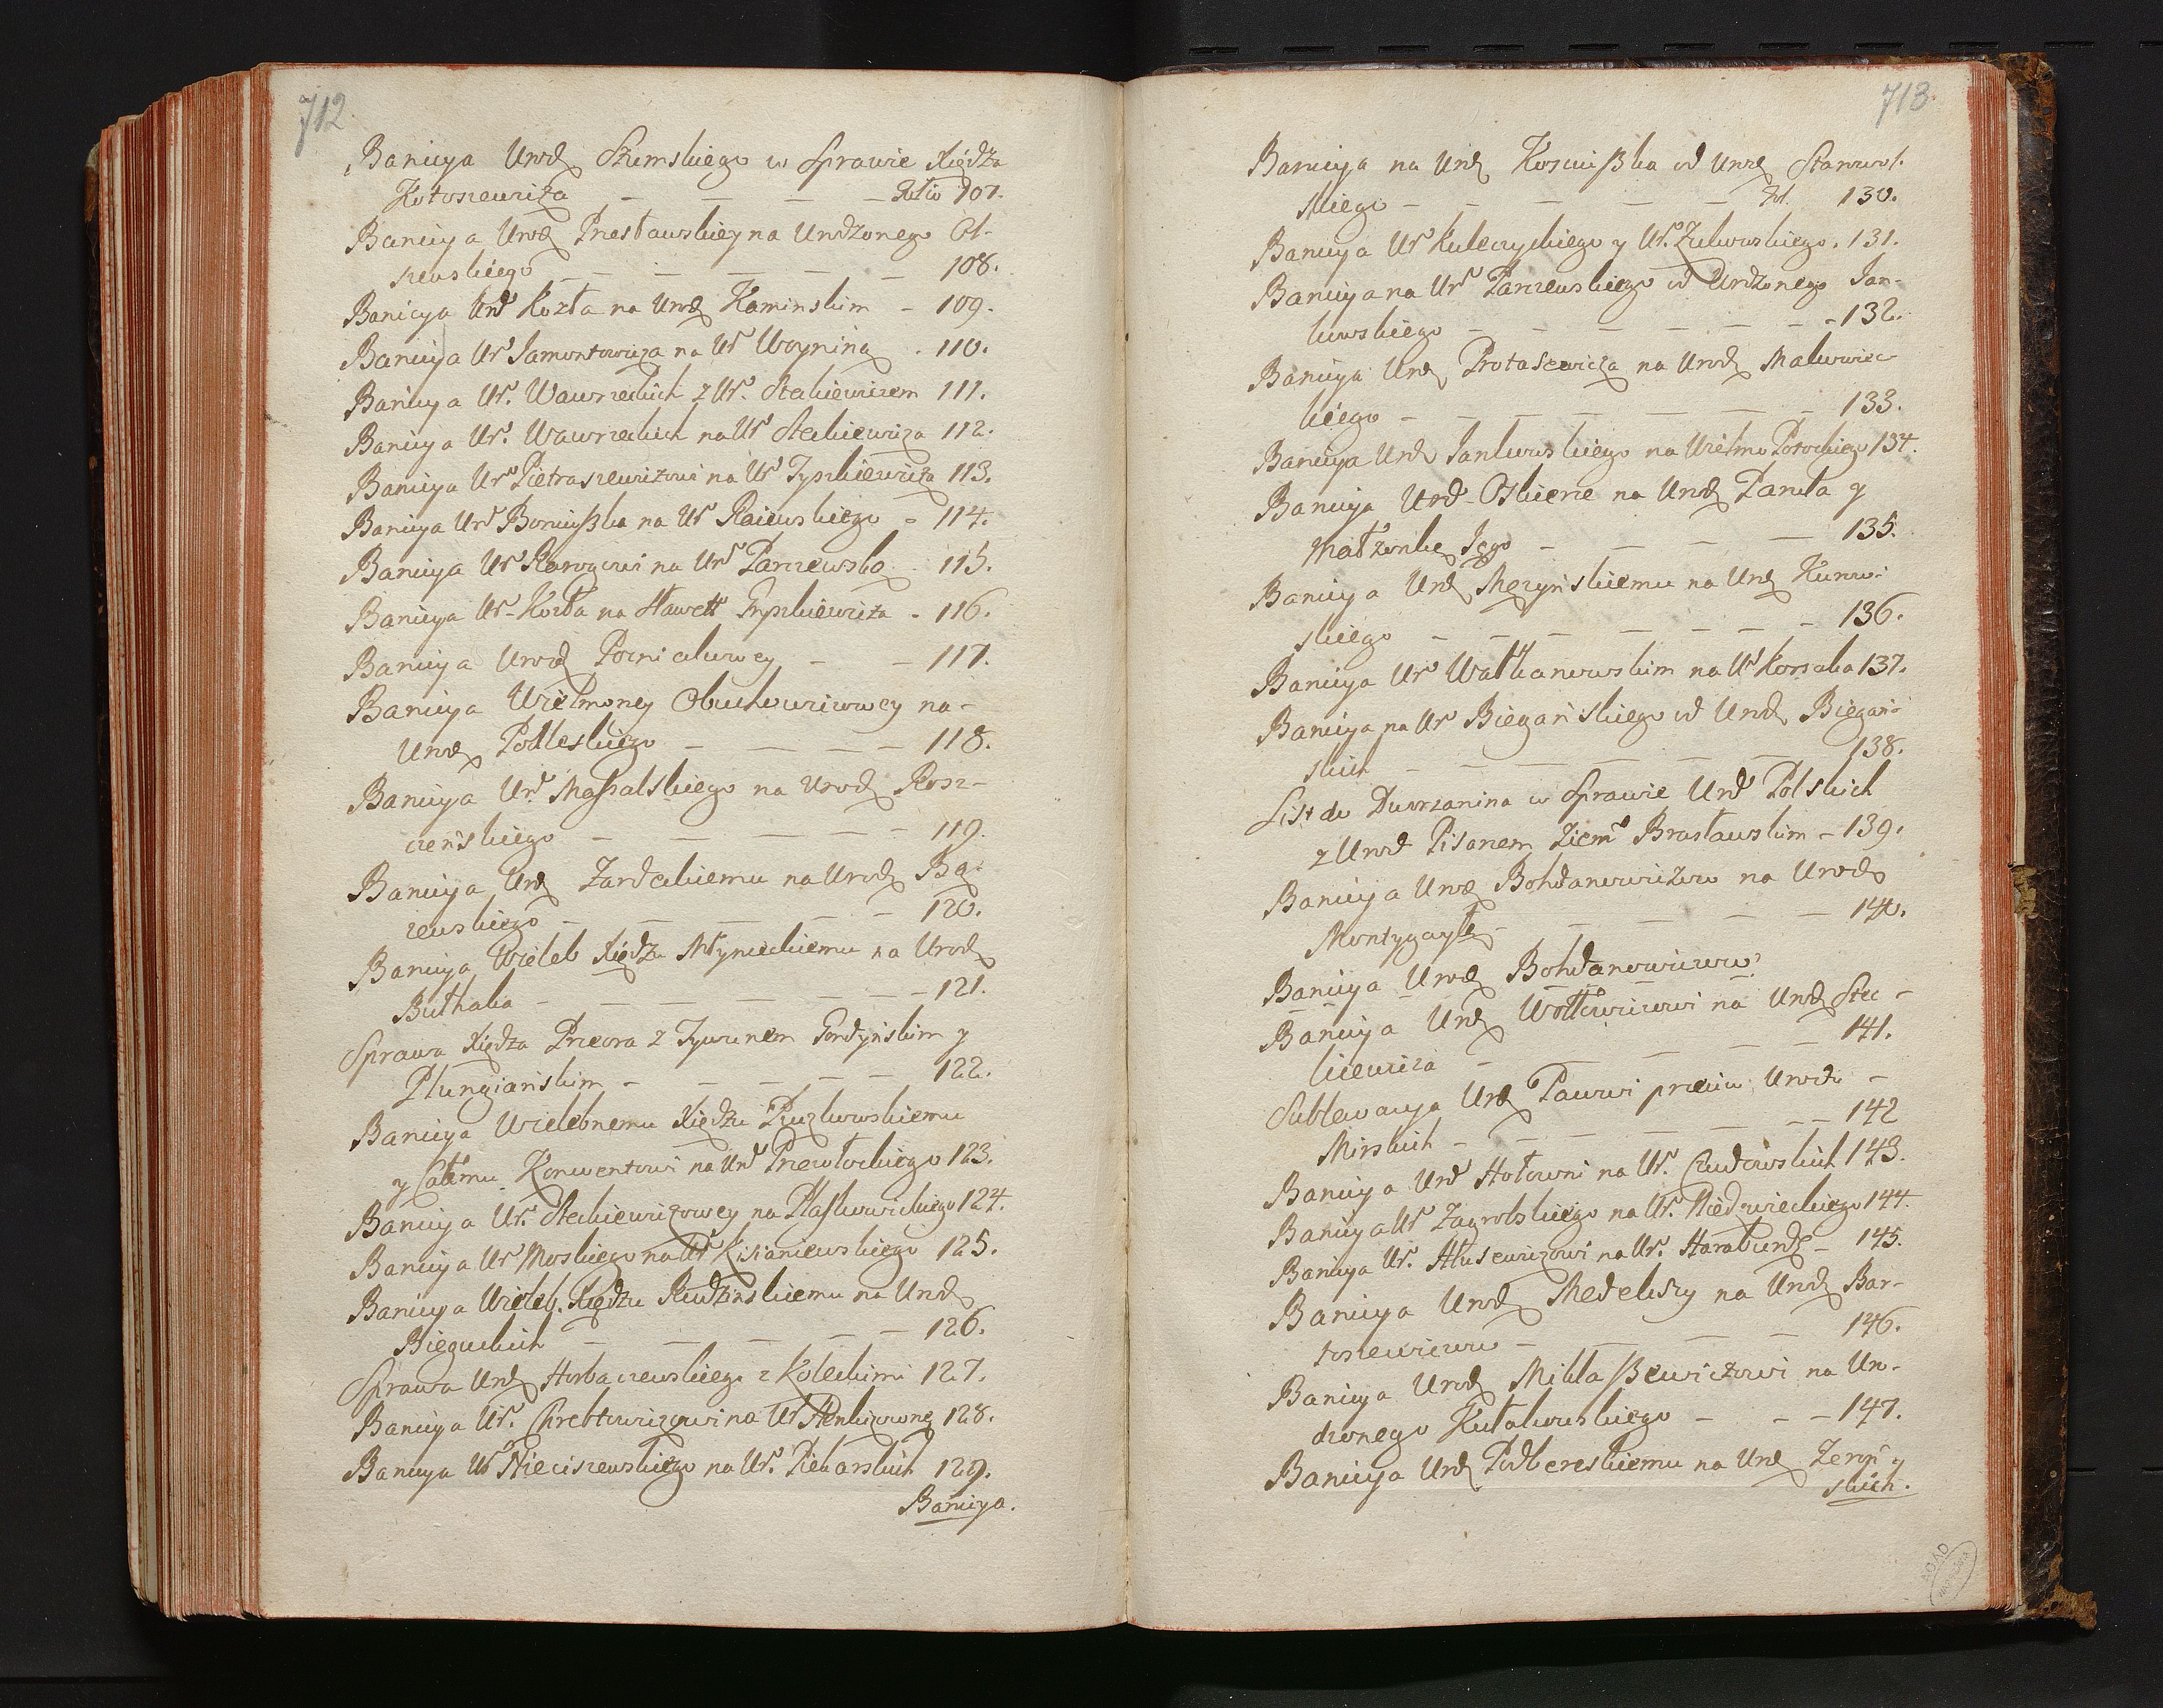 712.
Banicya Urodz Szumskiego w Sprawie Xiędza
Kotoszewicza — — — — Folio 107.
Banicya Urodz Przesławskiey na Urodzonego Ol-
szewskiego — — — — — 108.
Banicya Urd Kozła na Urodz Kaminskim — 109.
Banicya Ur Jamontowicza na Ur Woyniną . 110.
Banicya Ur. Wawrzeckich z Ur. Steckiewiczem 111.
Banicya Ur. Wawrzeckich na Ur Steckiewicza 112.
Banicya Ur Pietraszewiczowi na Ur Tyszkiewicza 113.
Banicya Urd Boruyszka na Ur Raiewskiego — 114.
Banicya Ur Karęzowi na Urd Parczewską . 115.
Banicya Ur Kozła na Sławett Gryszkiewicza . 116.
Banicya Urod Pozniakowey — — 117.
Banicya Wielmoney Obuchowiczowey na-
Urod Podleskiego — — — — 118.
Banicya Urd Massalskiego na Urod Rosz-
czeńskiego — — — — — 119.
Banicya Urd Zardeckiemu na Urod Bą-
czewskiego — — — — — 120.
Banicya Wieleb Xiędzu Młynieckiemu na Urod
Buthaka — — — — — — 121.
Sprawa Xiędza Przeora z Tywunem Gondyńskim y
Plungiańskim — — — — — 122.
Banicya Wielebnemu Xiędzu Puzkowskiemu
y Całemu Konwentowi na Urd Przewłockiego 123.
Banicya Ur. Steckiewiczowey na Plaskowickiego 124.
Banicya Ur Moskiego na Ur Kisianiewskiego 125.
Banicya Wieleb. Xiędzu Rudzinskiemu na Urod
Bieguckich — — — — — 126.
Sprawa Urd Horbaczewskiego z Koleckimi 127.
Banicya Ur. Chrebtowiczowi na Ur Renkizową 128.
Banicya Ur Nieciszewskiego na Ur. Piekarskich 129.
Banicya.
713.
Banicya na Urd Kosciuszka od Urod Starowol-
skiego — — — — — Fol. 130.
Banicya Ur Kuleczyckiego y Ur. Zukowskiego . 131.
Banicya na Ur Parczewskiego od Urodzonego Jan-
kowskiego — — — — — — 132.
Banicya Urd Protasewicza na Urod Makowiec-
kiego — — — — — — 133.
Banicya Urd Jankowskiego na Wielmo Potockiego 134.
Banicya Urd Oskierce na Urod Pancła y
Małżonkę Jego — — — — 135.
Banicya Urd Męzyńskiemu na Urd Kunow-
skiego — — — — — — 136.
Banicya Ur Wałkanowskim na Ur Korsaka 137.
Banicya na Ur Biegańskiego od Urod Biegań-
skich — — — — — — 138.
List do Dworzanina w Sprawie Urd Polskich
z Urod Pisarzem Ziem Brasławskim — 139.
Banicya Urod Bohdanowiczow na Urod
Montygayłę — — — — 140.
Banicya Urod Bohdanowiczow
Banicya Urd Wołłowiczowi na Urod Stec-
kiewicza — — — — — 141.
Sublewacya Urd Pawwi przeciw Urodz —
Mirskich — — — — — — 142
Banicya Urd Hołowni na Ur. Czudowskich 143.
Banicya Ur Zagrobskiego na Ur. Niedzwieckiego 144.
Banicya Ur. Hłusewiczowi na Ur. Haraburdę — 145.
Banicya Urod Medekszy na Urod Bar-
toszewiczow — — — — 146.
Banicya Urod Mikłaszewiczowi na Uro-
dzonego Kułakowskiego — — — 147.
Banicya Urd Podbereskiemu na Urd Zeroń-
skich.
AGAD
WARSZAWA